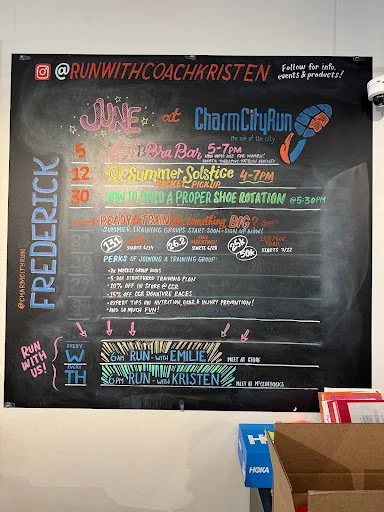 @RUNWITHCOACHKRISTEN
Follow for info,
events & products!
JUNE at CharmCityRun
the sole of the city
FREDERICK
@CHARMCITYRUN
5 Bra Bar 5-7PM
12 Summer Solstice 4-7PM
PACKET PICKUP
30 HOW TO BUILD A PROPER SHOE ROTATION @5:30PM
READY to TRAIN for something BIG?
SUMMER TRAINING GROUPS START SOON - SIGN UP NOW!
13.1
26.2
25K
50K
PERKS OF JOINING A TRAINING GROUP:
-2x WEEKLY GROUP RUNS
-5 DAY STRUCTURED TRAINING PLAN
-10% OFF IN STORE @ CCR
-15% OFF CCR SIGNATURE RACES
-EXPERT TIPS ON NUTRITION, GEAR, & INJURY PREVENTION!
-AND SO MUCH FUN!
RUN
WITH
US!
EVERY
W 6AM RUN - WITH EMILIE MEET AT STORE
EVERY
TH 6PM RUN - WITH KRISTEN MEET @ McCLINTOCKS
HOKA